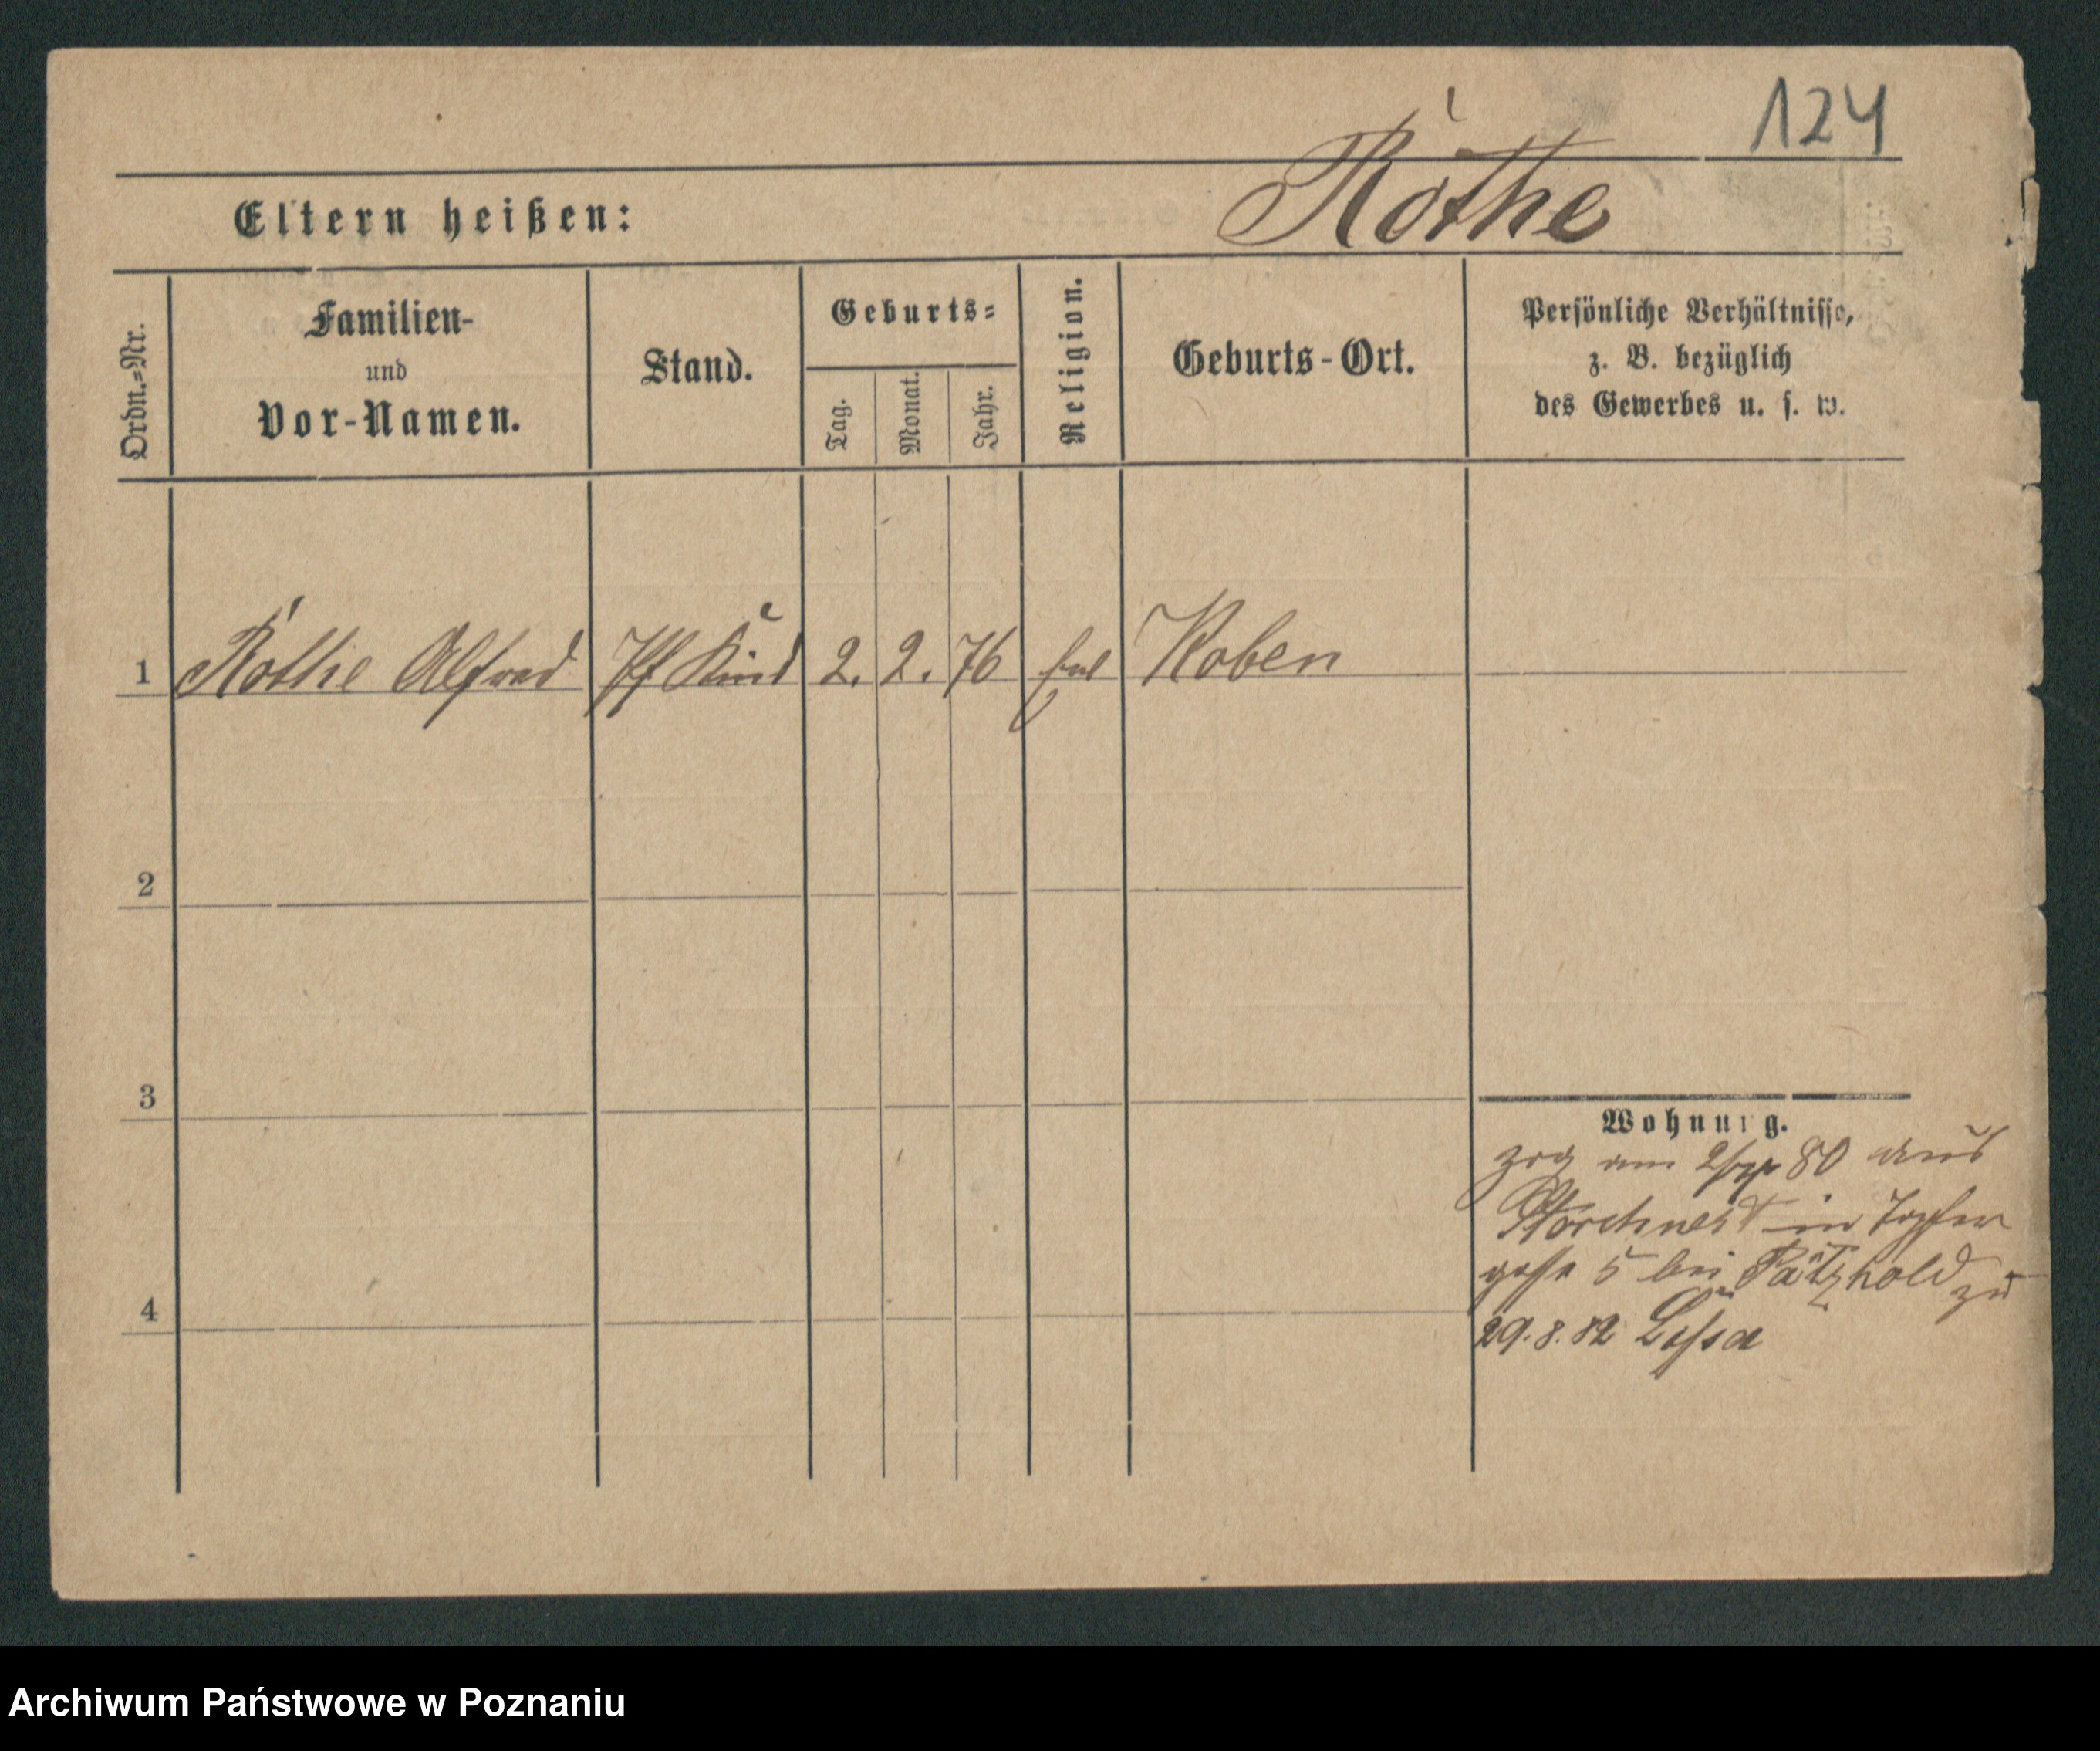 124
Rothe
Eltern heißen:
Ordn.-Nr.
Familien-
und
Vor-Namen.
Stand.
Geburts-
Tag.
Monat.
Jahr.
Religion.
Geburts-Ort.
Persönliche Verhältnisse,
z. B. bezüglich
des Gewerbes u. s. w.
1 Rothe Alfred Pf Kind 2. 2. 76 Koben
2
3
4
Wohnung.
zog am 80 aus
Storchnest in Töpfer
gasse 5 bei Pätzhold zu
29. 8. 82 Lissa
Archiwum Państwowe w Poznaniu